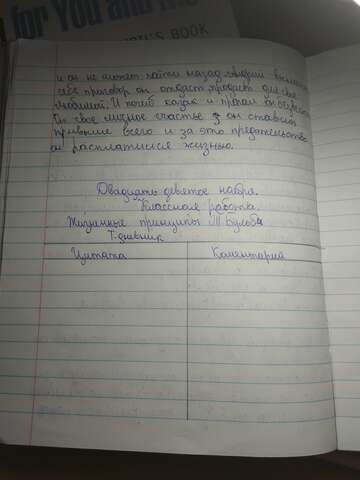 for You and
NT'S BOOK
и он не может пойти назад
себе приговор он отдаст продаст для свое
любимой. И погиб казак и пропал он
Он свое личное счастье он ставит
превыше всего и за это предательство
он расплатился жизнью.
Двадцать девятое ноября.
Классная работа.
Жизненные принципы Т Бульбы
Т-дневник
Цитата Коментарий